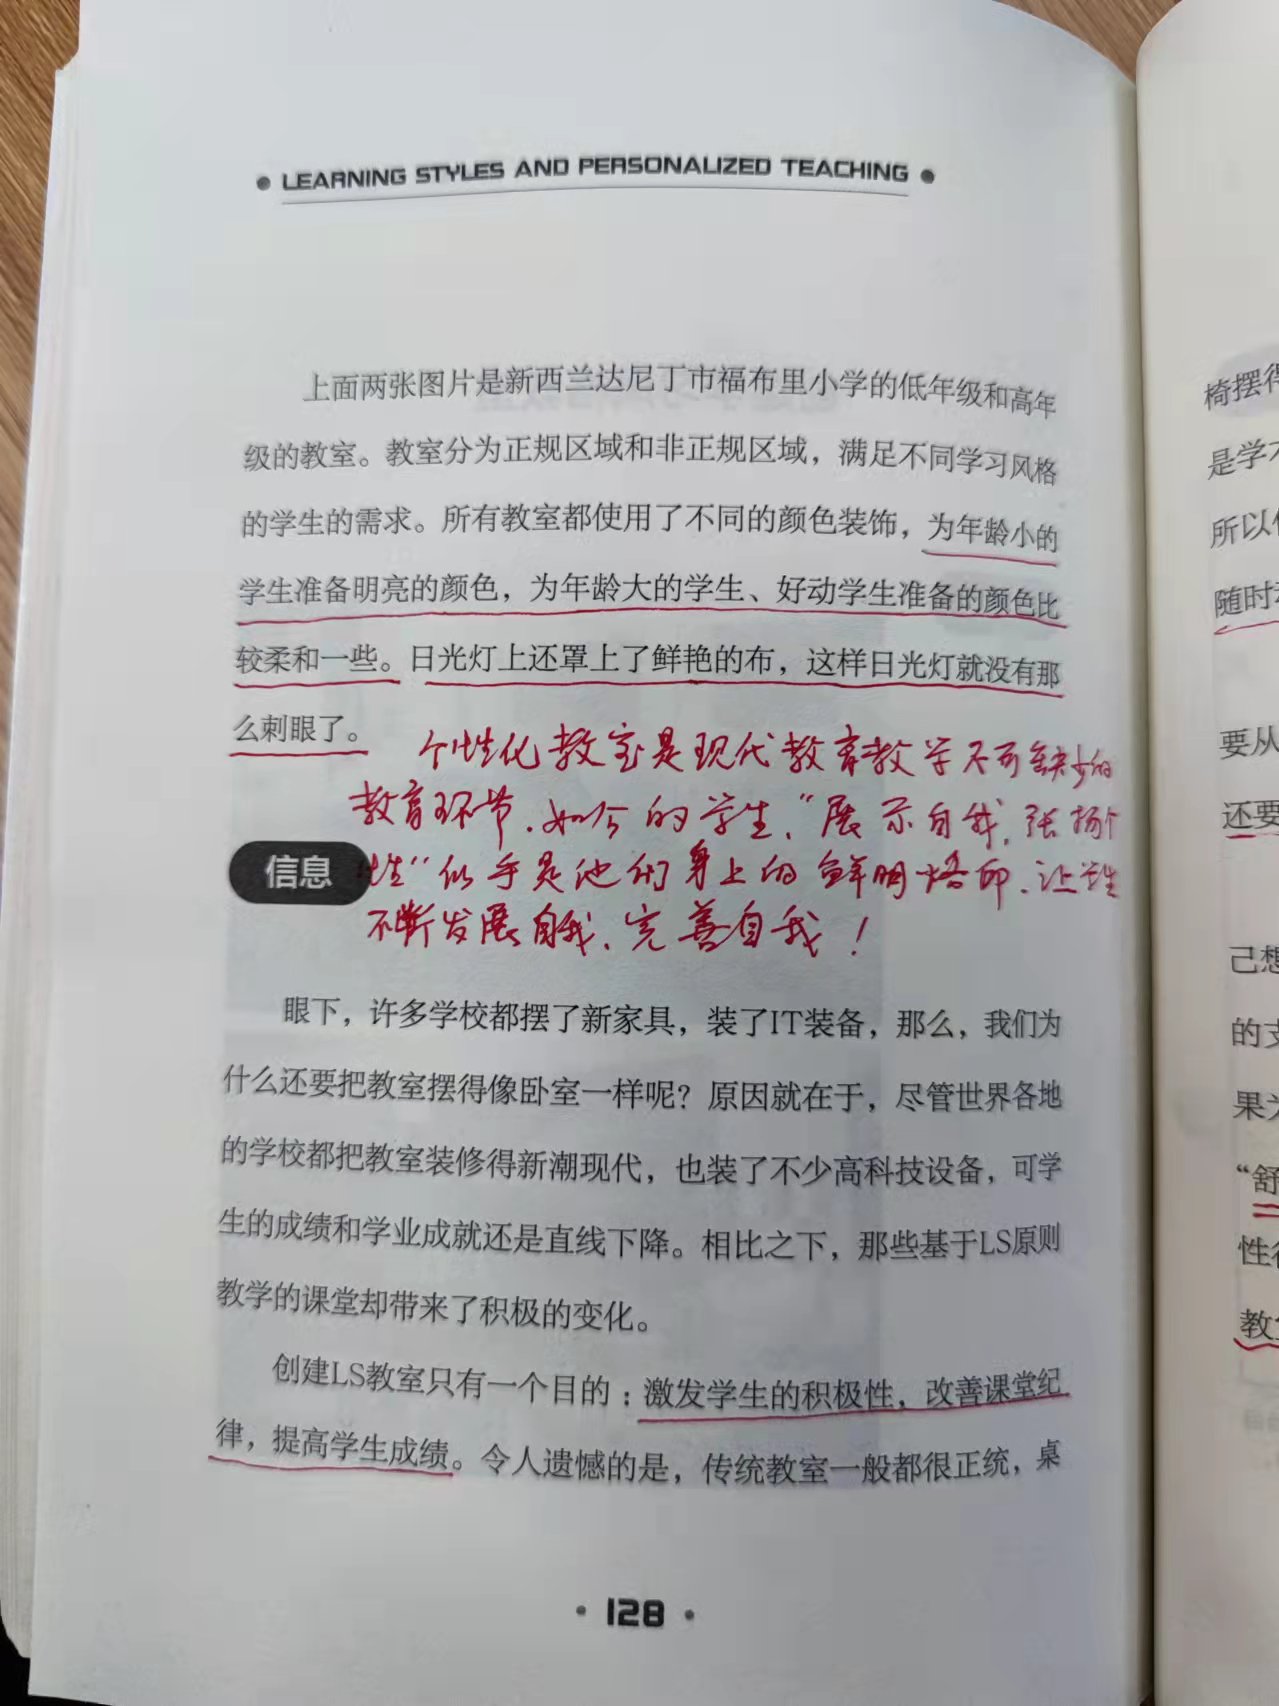 LEARNING STYLES AND PERSONALIZED TEACHING
上面两张图片是新西兰达尼丁市福布里小学的低年级和高年
级的教室。教室分为正规区域和非正规区域，满足不同学习风格
的学生的需求。所有教室都使用了不同的颜色装饰，为年龄小的
学生准备明亮的颜色，为年龄大的学生、好动学生准备的颜色比
较柔和一些。日光灯上还罩上了鲜艳的布，这样日光灯就没有那
么刺眼了。
个性化教室是现代教育教学不可缺少的
教育环节.如今的学生,“展示自我,张扬个
性”似乎是他们身上的鲜明烙印.让学生
不断发展自我、完善自我！
信息
眼下，许多学校都摆了新家具，装了IT装备，那么，我们为
什么还要把教室摆得像卧室一样呢？原因就在于，尽管世界各地
的学校都把教室装修得新潮现代，也装了不少高科技设备，可学
生的成绩和学业成就还是直线下降。相比之下，那些基于LS原则
教学的课堂却带来了积极的变化。
创建LS教室只有一个目的：激发学生的积极性，改善课堂纪
律，提高学生成绩。令人遗憾的是，传统教室一般都很正统，桌
128
椅摆得
是学
所以
随时
要从
还要
己想
的
果
“舒
性
教